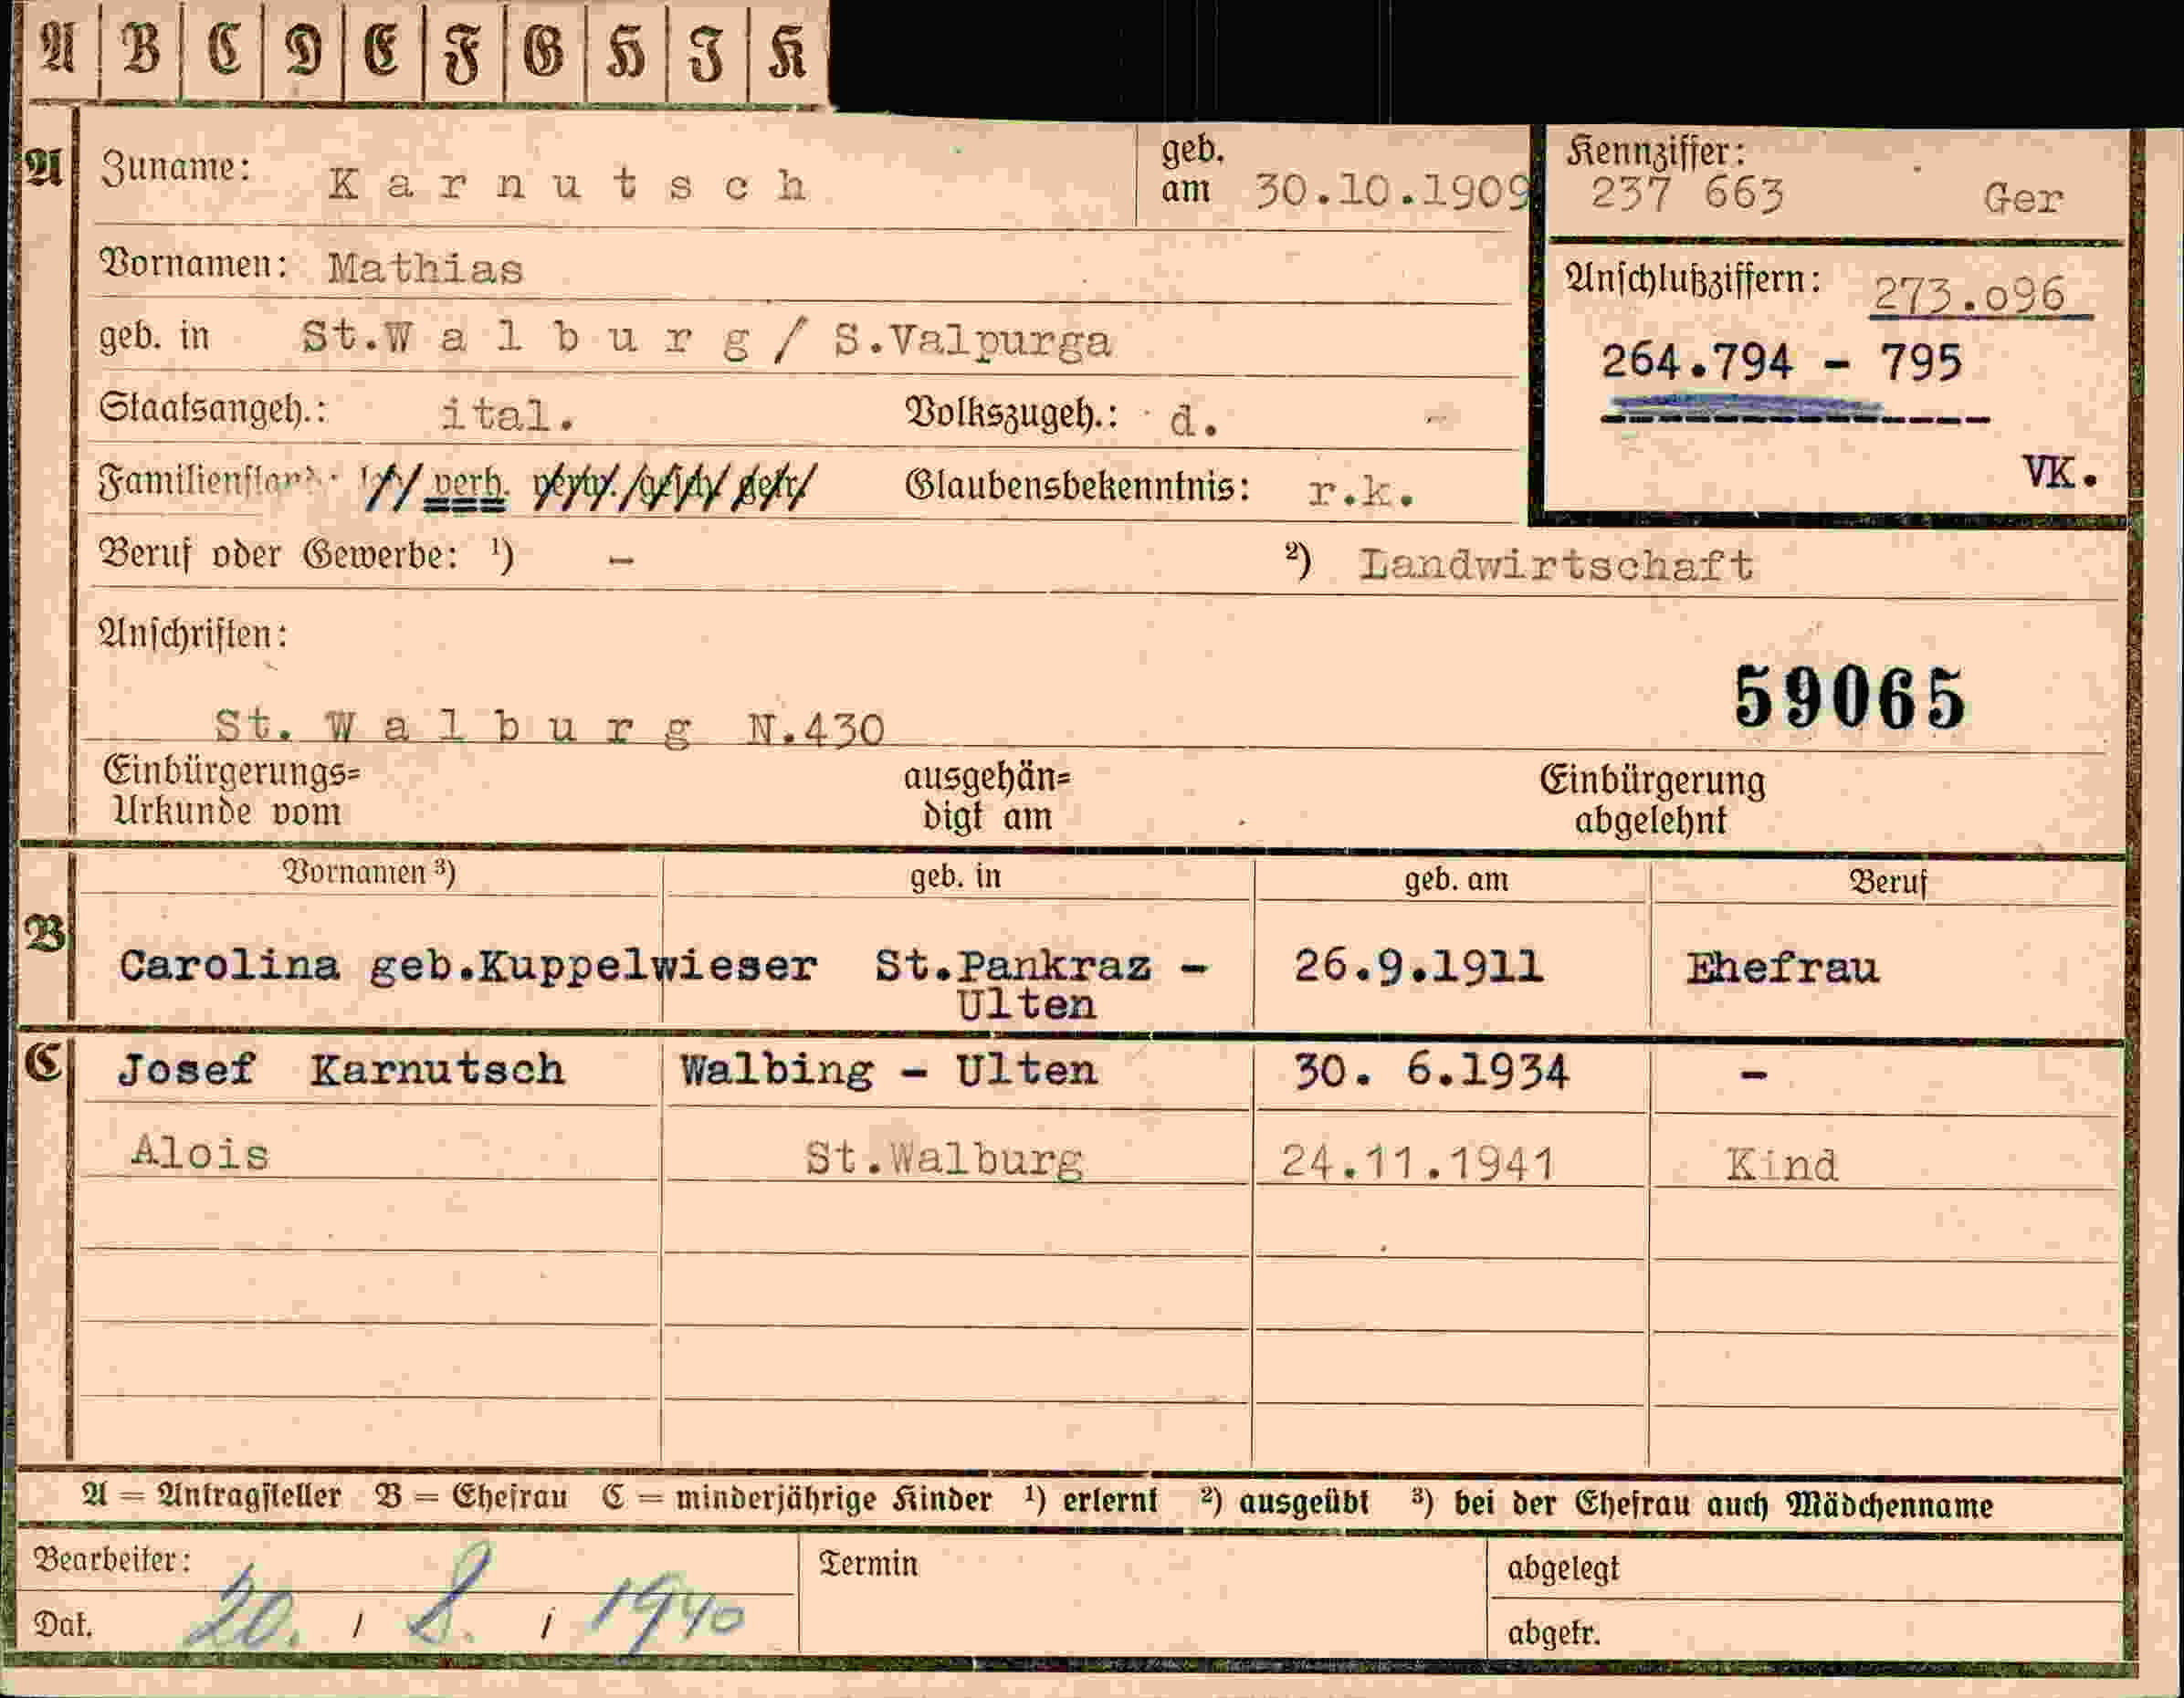 A B C D E F G H I K
A Zuname: Karnutsch geb. am 30.10.1909
Kennziffer: 237 663 Ger
Vornamen: Mathias
Anschlußziffern: 273.096
geb. in St.Walburg/ S.Valpurga
264.794 - 795
Staatsangeh.: ital. Volkszugeh.: d. -
VK.
verh. Glaubensbekenntnis: r.k.
Beruf oder Gewerbe: ¹) - ²) Landwirtschaft
Anschriften:
59065
St. Walburg N.430
Einbürgerungs= Urkunde vom ausgehän= digt am Einbürgerung abgelehnt
Vornamen ³) geb. in geb. am Beruf
B Carolina geb.Kuppelwieser St.Pankraz - Ulten 26.9.1911 Ehefrau
C Josef Karnutsch Walbing - Ulten 30. 6.1934 -
Alois St.Walburg 24.11.1941 Kind
A = Antragsteller B = Ehefrau C = minderjährige Kinder ¹) erlernt ²) ausgeübt ³) bei der Ehefrau auch Mädchenname
Bearbeiter: Termin abgelegt
Dat. 20. / 8. / 1940 abgetr.